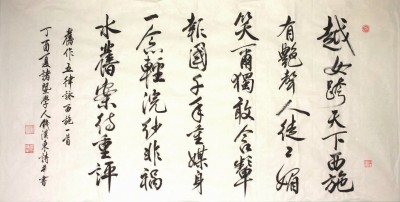 越女跨天下西施
有艷聲人徒工媚
笑爾獨敢含顰
報國千年重媒身
一念輕浣紗非禍
水舊案待重評
舊作五律詠西施一首
丁酉夏諸暨學人錢漢東詩并書